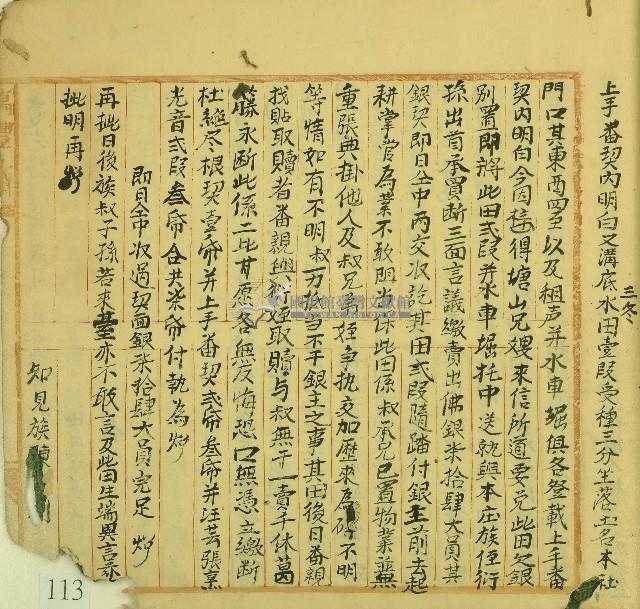 上手番契內明白又溝底水田壹段受種三分坐落土名本社
三冬
門口其東西四至以及租声并水車堀俱各登載上手番
契內明白今因接得塘山兄嫂來信所道要兑此田欠銀
別置即將此田弍段并水車堀托中送就與本庄族侄衍
孫出首承買斷三面言議繳賣出佛銀柒拾肆大員其
銀契即日仝中兩交收訖其田弍段隨踏付銀主前去起
耕掌管為業不敢阻当保此田係叔承兄已置物業並無
重張典掛他人及叔兄弟姪争执交加歷來為碍不明
等情如有不明叔一力抵当不干銀主之事其田後日番親
找貼取贖者番親與姪取贖与叔無干一賣千休葛
籐永断此係二比甘愿各無反悔恐口無憑立繳断
杜絕尽根契壹帋并上手番契弍帋叁帋并汪芸張熏
光音弍段叁帋合共柒帋付執為炤
即日仝中收過契面銀柒拾肆大員完足 炤
再批日後族叔子孫若來臺亦不敢言及此田生端異言
批明再炤
知見族陳
國史館臺灣文獻館
TAIWAN HISTORICA
113